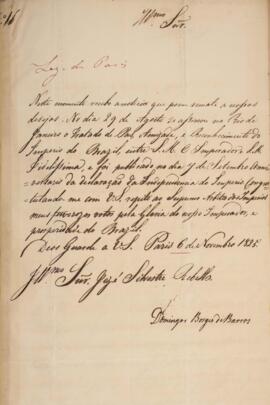 Illmo
Snr.
Leg. de Paris
Neste momento recebo a noticia que poem remate a nossos
desejos. No dia 29 de Agosto se assinou no Rio de
Janeiro o Tratado de Paz, Amizade, e Reconhecimento do
Imperio do Brazil, entre S. M. O Imperador e S. M.
Fidelissima, e foi publicado no dia 7 de Setembro Anni-
versario da declaração da Independencia do Imperio Congra-
tulando me com V.S. repito ao Supremo Arbitro dos Imperios
meus votos pela Gloria do nosso Imperador, e
prosperidade do Brazil.
Deos Guarde a V.S. Paris 6 de Novembro 1825.
Illmo Snr. José Silvestre Rebello
Domingos Borges de Barros